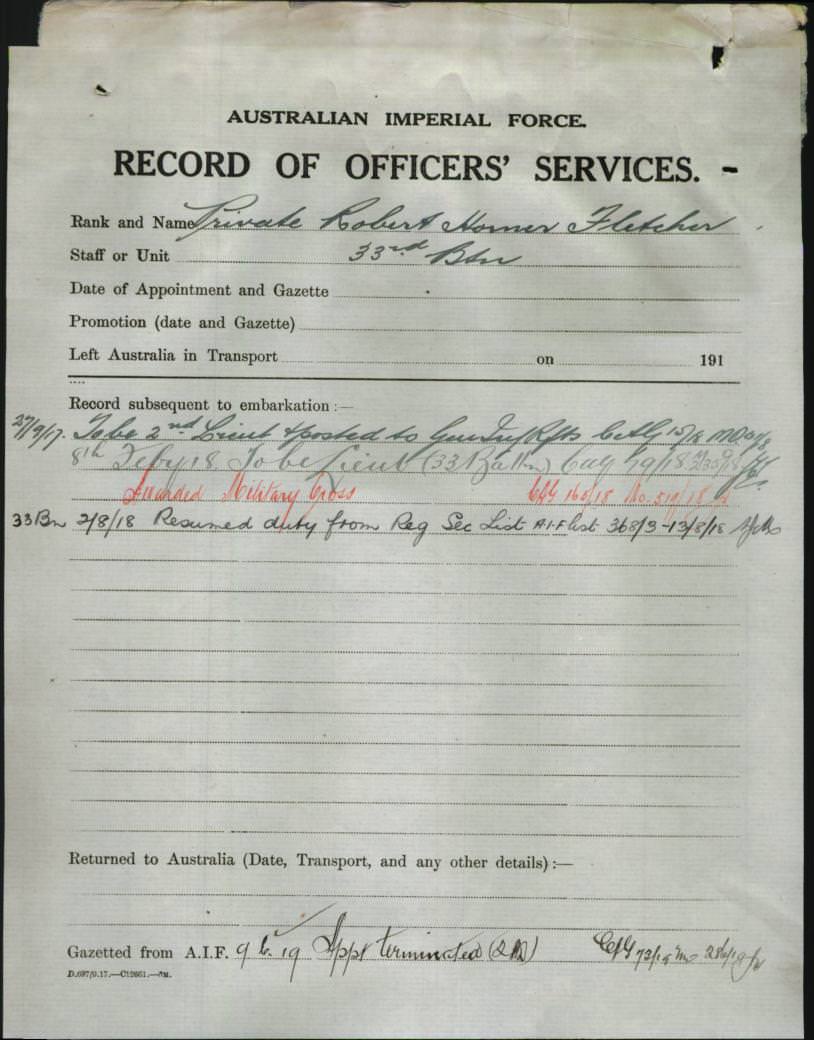 AUSTRALIAN IMPERIAL FORCE.
RECORD OF OFFICERS' SERVICES. -
Rank and Name Private Robert Homer Fletcher
Staff or Unit 33rd Btn
Date of Appointment and Gazette
Promotion (date and Gazette)
Left Australia in Transport on 191
Record subsequent to embarkation :—
27/9/17. To be 2nd Lieut & posted to Gen Inf Rfts
8th Feby 18 To be Lieut (33 Battn) 29/18
Awarded Military Cross CAG 165/18
33 Bn 2/8/18 Resumed duty from Reg Sec List A.I.F list 368/3-13/8/18
Returned to Australia (Date, Transport, and any other details) :—
Gazetted from A.I.F. 9 6. 19 Appt terminated CAG 73/19
D.697/9.17.—C12661.—